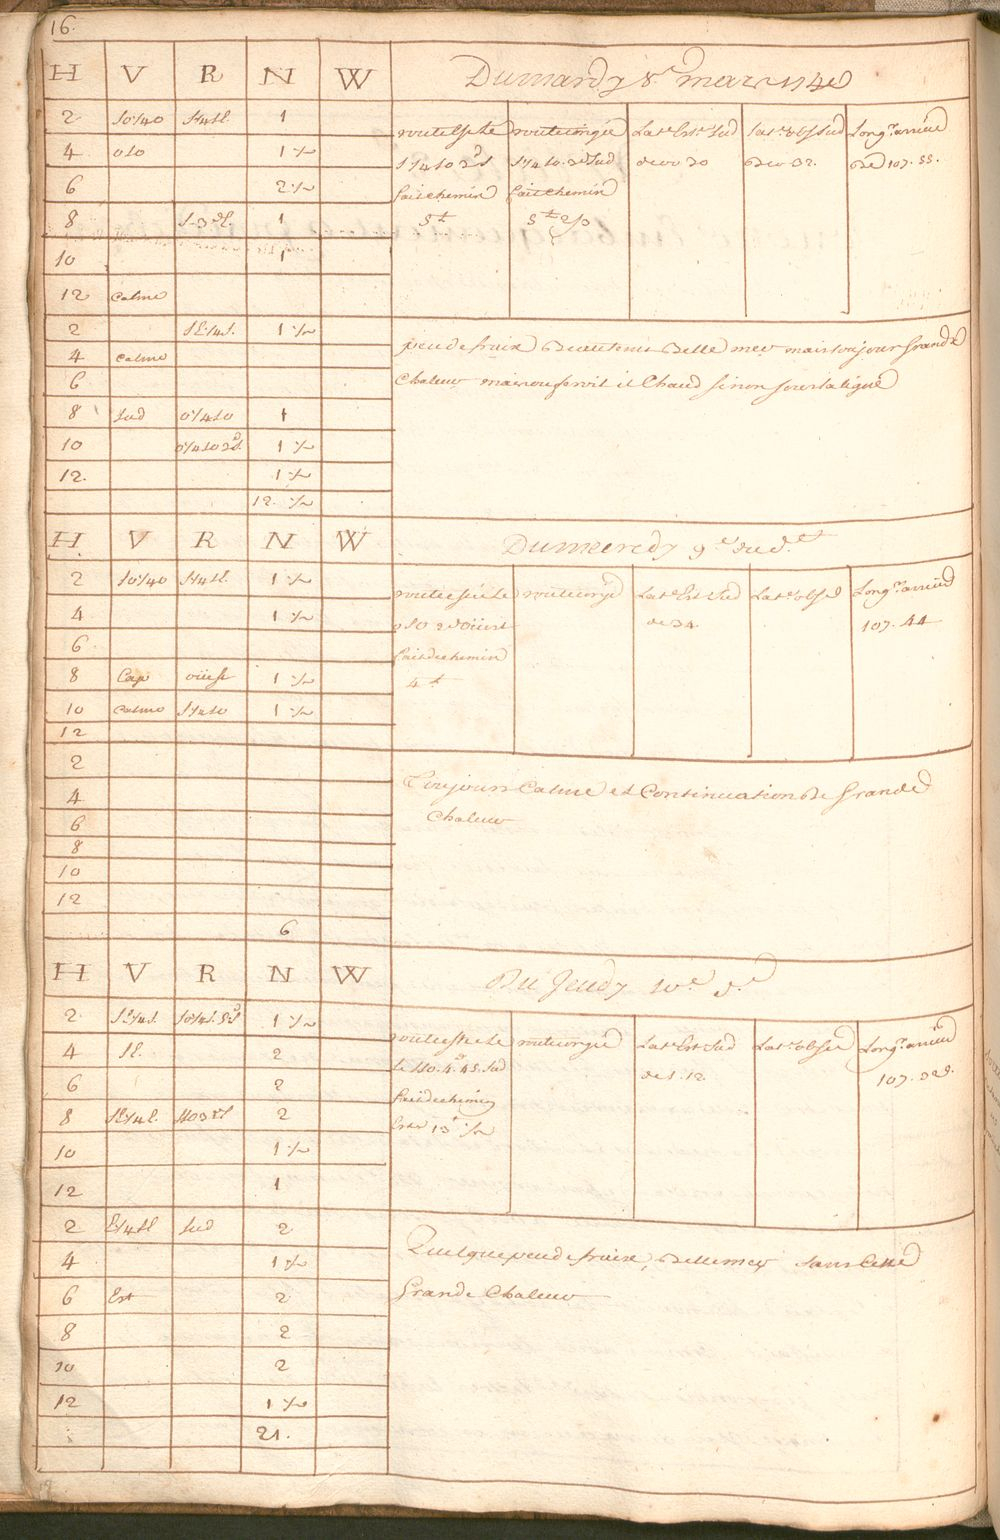 16.
H V R N W Du mardy 8e. mars 1740
2 So1/4o S1/4SE. 1
4 oso 1 1/2
6 2 1/2
8 S-3dE. 1
10 1
12 Calme
2 SE1/4S. 1 1/2
4 Calme
6
8 Sud o1/4So 1
10 o1/4So 2d S. 1 1/2
12. 1 1/2
12. 1/2
route Estée Late. Est. Sud Late. obs Sud Longe. arrivée
S1/4So 2d S S1/4So. 2d Sud de 00 30 de 00 32. de 107. 55.
fait chemin fait chemin
5t 5t 2/3
peu de fraix Beautems Belle mer mais toujour Grande
Chaleur mais ou feroit il Chaud sinon sous la ligne
H V R N W Du mercredy 9e. du d.t
2 So1/4o S1/4SE. 1 1/2
4 1 1/2
6
8 Cap oüest 1 1/2
10 Calme S1/4So 1 1/2
12
2
4
6
8
10
12
6
Late. Est Sud Late. obsé Longe. arrivée
oSo 2d oüest de 34 107. 44
fait de chemin
4t
Toujours Calme et Continuation de Grande
Chaleur
H V R N W Du Jeudy 10e. d.t
2 SE1/4S. So1/4S. 5d S 1 1/2
4 SE. 2
6 2
8 SE1/4E. SSo 3d S 2
10 1 1/2
12 1
2 E1/4SE Sud 2
4 1 1/2
6 Est 2
8 2
10 2
12 1 1/2
21.
Late. Est. Sud Late. obsée Longe. arrivée
le SSo. 4d. 45. Sud de 1. 12. 107.
fait de chemin
13t 1/2
Quelque peu de fraix, Belle mer sans Cette
Grande Chaleur